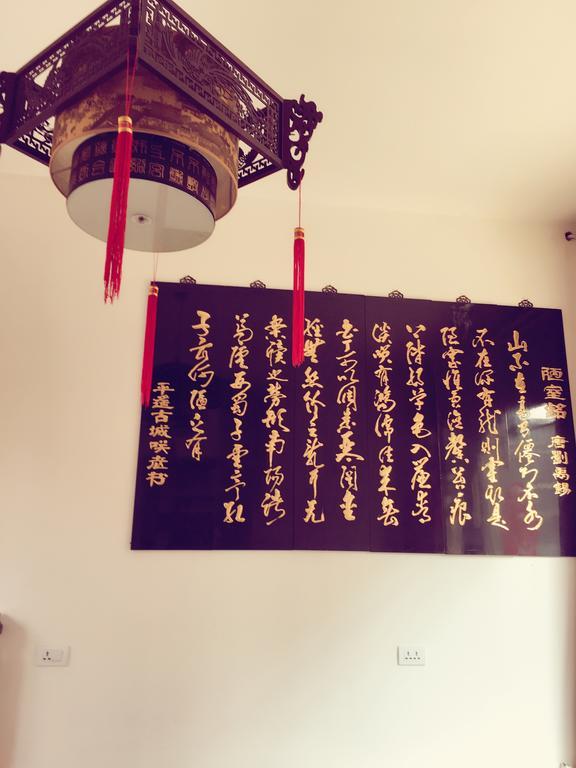 陋室銘 唐劉禹錫
山不在高有僊則名水
不在深有龍則靈斯是
陋室惟吾德馨苔痕
上階綠草色入簾青
談咲有鴻儒往來無
白丁可以調素琴閱金
經無絲竹之亂耳無
案牘之勞形南陽諸
葛廬西蜀子雲亭孔
子云何陋之有
平遥古城